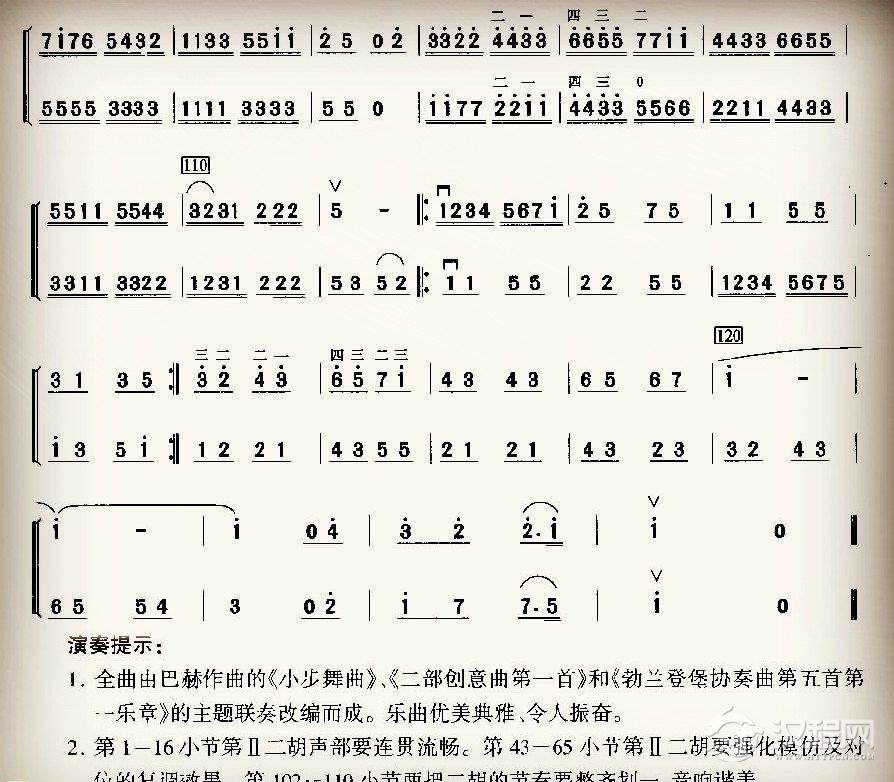 二 一 四 三 二
7i76 5432 | 1133 55ii | 25 02 | 3322 4433 | 6655 77ii | 4433 6655 |
二 一 四 三 0
5555 3333 | 1111 3333 | 55 0 | ii77 22ii | 4433 5566 | 2211 4433 |
110
5511 5544 | 3231 222 | 5 - |: 1234 567i | 25 75 | 11 55 |
3311 3322 | 1231 222 | 53 52 |: 11 55 | 22 55 | 1234 5675 |
三二 二一 四三二三 120
31 35 :| 32 43 | 657i | 43 43 | 65 67 | i - |
i3 5i :| 12 21 | 4355 | 21 21 | 43 23 | 32 43 |
i - | i 04 | 3 2 | 2·i | i 0
65 54 | 3 02 | i 7 | 7·5 | i 0
演奏提示:
1. 全曲由巴赫作曲的《小步舞曲》、《二部创意曲第一首》和《勃兰登堡协奏曲第五首第
一乐章》的主题联奏改编而成。乐曲优美典雅、令人振奋。
2. 第1—16小节第Ⅱ二胡声部要连贯流畅。第43—65小节第Ⅱ二胡要强化模仿及对
位的复调效果。第102—110小节两把二胡的节奏要整齐划一,音响谐美。
汉程网